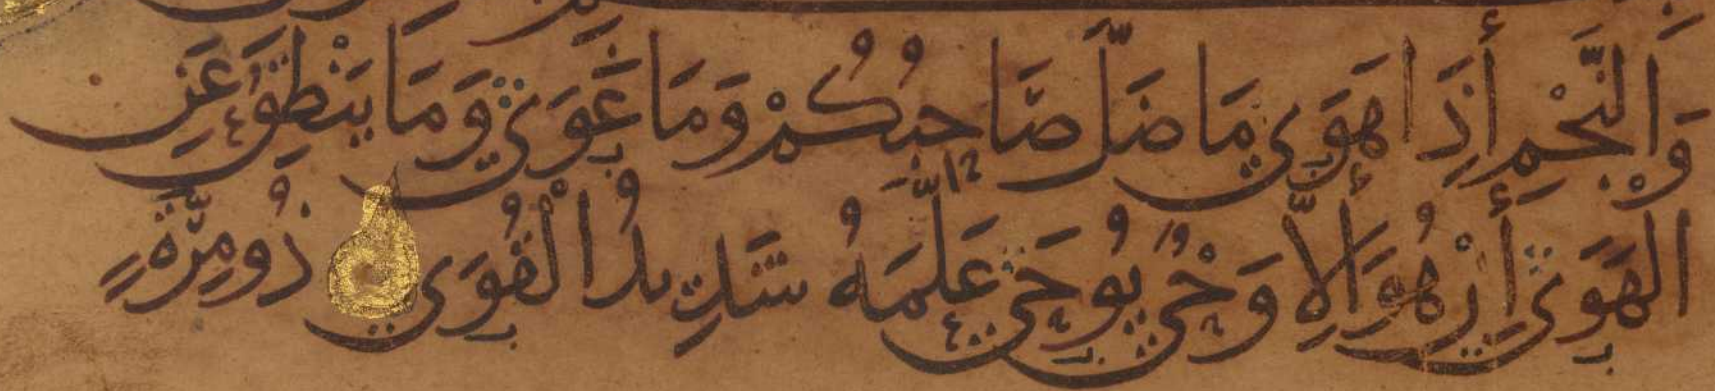 وَالنَّجْمِ إِذَا هَوَى مَا ضَلَّ صَاحِبُكُمْ وَمَا غَوَى وَمَا يَنْطِقُ عَنِ
الْهَوَى إِنْ هُوَ إِلَّا وَحْيٌ يُوحَى عَلَّمَهُ شَدِيدُ الْقُوَى ذُو مِرَّةٍ